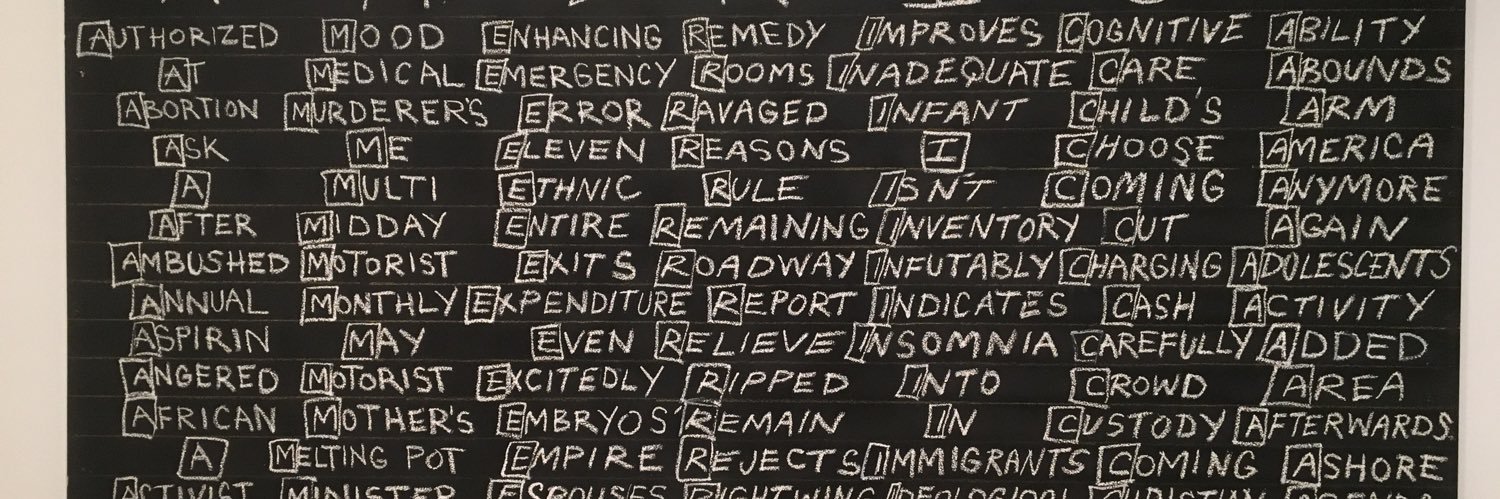 AUTHORIZED MOOD ENHANCING REMEDY IMPROVES COGNITIVE ABILITY
AT MEDICAL EMERGENCY ROOMS INADEQUATE CARE ABOUNDS
ABORTION MURDERER'S ERROR RAVAGED INFANT CHILD'S ARM
ASK ME ELEVEN REASONS I CHOOSE AMERICA
A MULTI ETHNIC RULE ISN'T COMING ANYMORE
AFTER MIDDAY ENTIRE REMAINING INVENTORY CUT AGAIN
AMBUSHED MOTORIST EXITS ROADWAY INFUTABLY CHARGING ADOLESCENTS
ANNUAL MONTHLY EXPENDITURE REPORT INDICATES CASH ACTIVITY
ASPIRIN MAY EVEN RELIEVE INSOMNIA CAREFULLY ADDED
ANGERED MOTORIST EXCITEDLY RIPPED INTO CROWD AREA
AFRICAN MOTHER'S EMBRYOS' REMAIN IN CUSTODY AFTERWARDS
A MELTING POT EMPIRE REJECTS IMMIGRANTS COMING ASHORE
ACTIVIST MINISTER ESPOUSES RIGHTWING IDEOLOGICAL CHRISTIAN